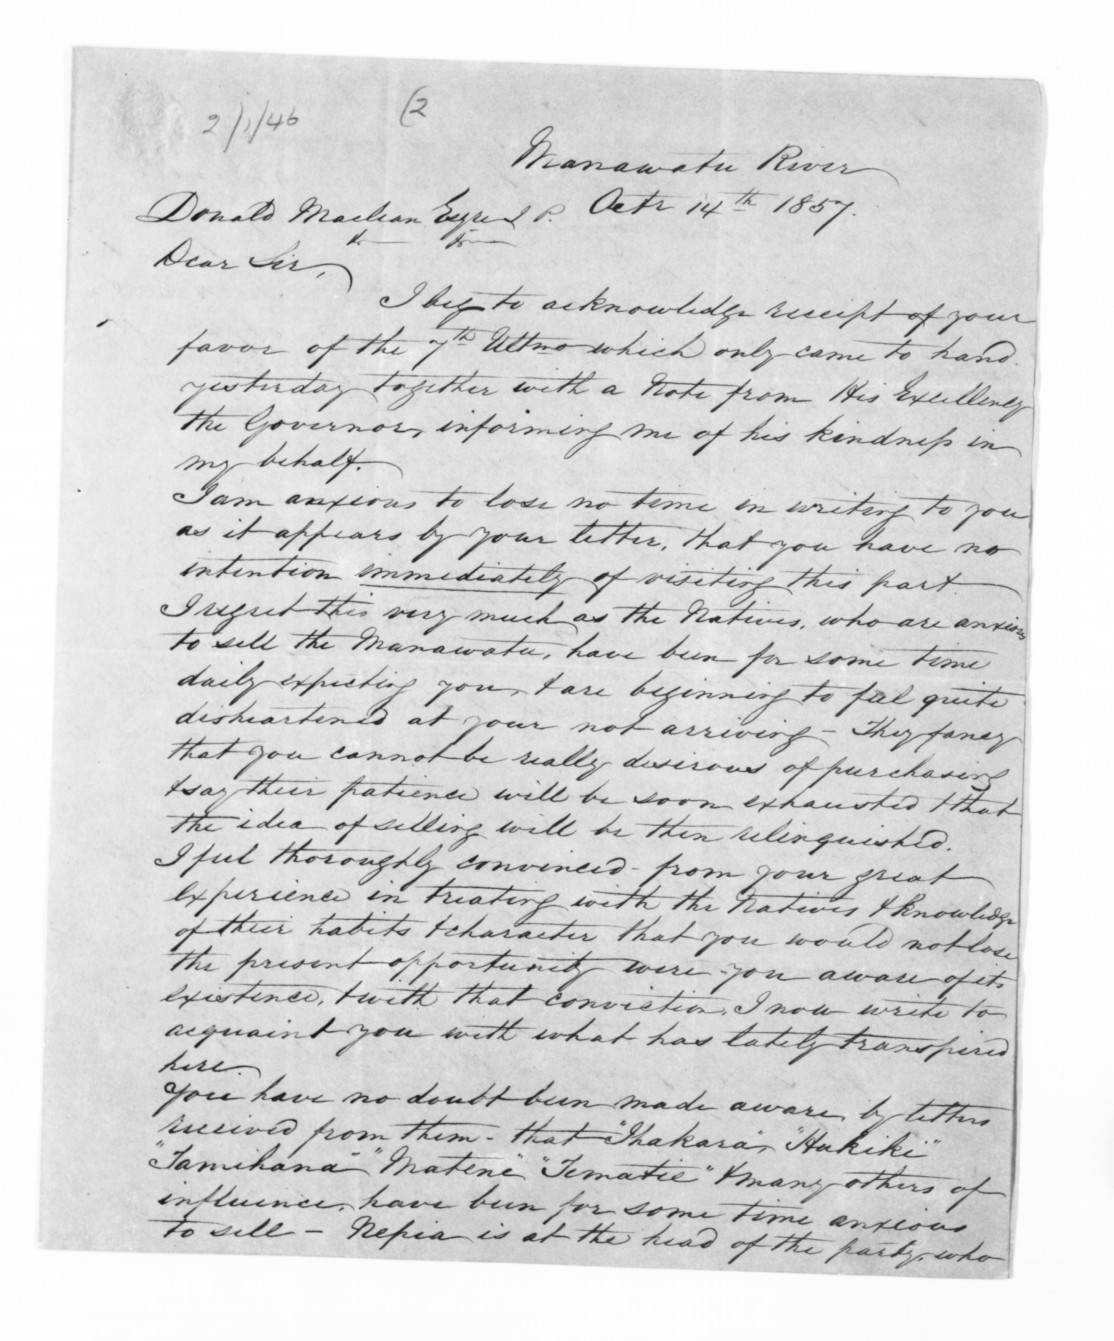 2/1/46 (2
Manawatu River
Octr 14th 1857.
Donald Maclean Esqre J P.
&c &c
Dear Sir,
I beg to acknowledge receipt of your
favor of the 7th Ultmo which only came to hand
yesterday together with a Note from His Excellency
the Governor, informing me of his kindness in
my behalf.
I am anxious to lose no time in writing to you
as it appears by your letter, that you have no
intention immediately of visiting this part.
I regret this very much as the Natives, who are anxious
to sell the Manawatu, have been for some time
daily expecting you, & are beginning to feel quite
disheartened at your not arriving - They fancy
that you cannot be really desirous of purchasing
& say their patience will be soon exhausted & that
the idea of selling will be then relinquished.
I feel thoroughly convinced - from your great
experience in treating with the Natives & knowledge
of their habits & character that you would not lose
the present opportunity were you aware of its
existence, & with that conviction, I now write to
acquaint you with what has lately transpired
here.
You have no doubt been made aware, by letters
received from them - that "Ihakara", "Hukiki"
"Tamihana" "Matene" "Tematie" & many others of
influence, have been for some time anxious
to sell - Nepia is at the head of the party, who